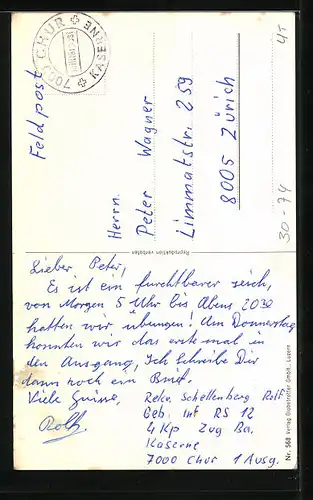 7000 CHUR
KASERNE
Feldpost
45
Herrn.
Peter Wagner
Limmatstr. 259
8005 Zürich
30-74
Reproduktion verboten
Lieber Peter,
Es ist ein furchtbarer seich,
von Morgen 5 Uhr bis Abens 2030
hatten wir übungen! Am Donnerstag
konnten wir das erste mal in
den Ausgang, Ich Schreibe Dir
dann noch ein Brief.
Viele Grüsse,
Rolf
Rekr. Schellenberg Rolf,
Geb. Inf RS 12
4 Kp Zug Ba.
Kaserne
7000 Chur 1 Ausg.
Nr. 568 Verlag Globetrotter GmbH., Luzern